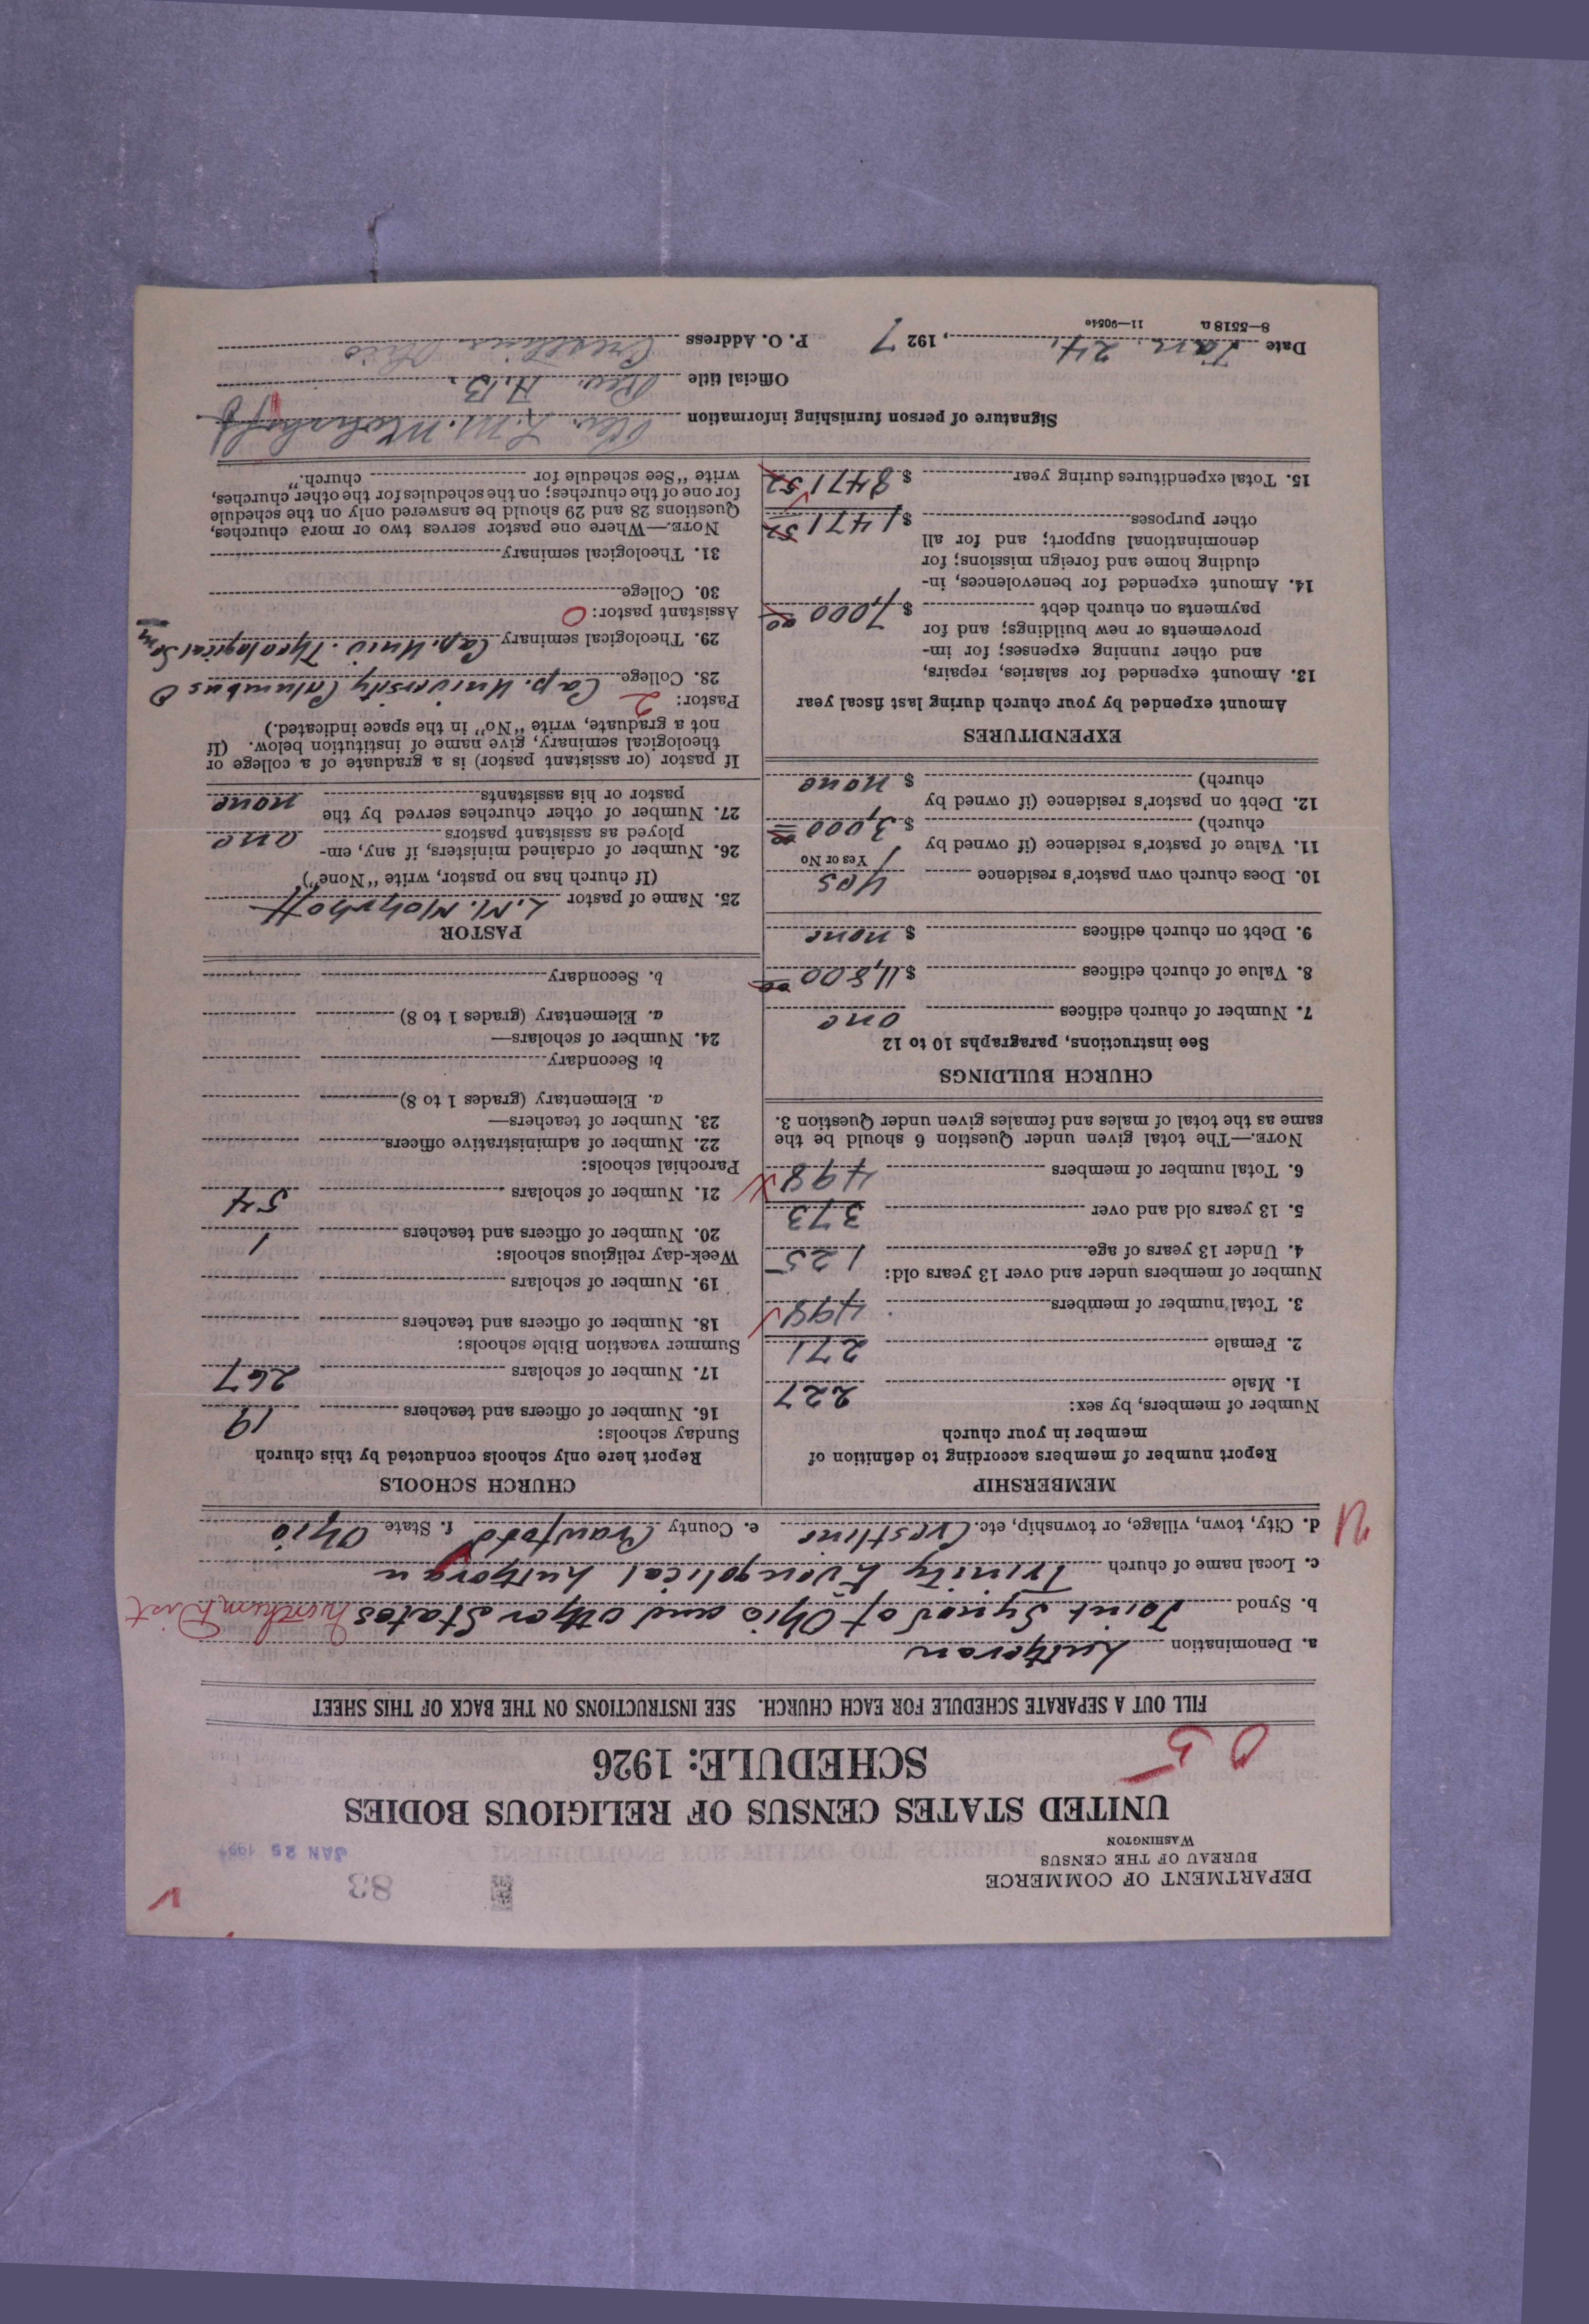 DEPARTMENT OF COMMERCE
BUREAU OF THE CENSUS
WASHINGTON
83
JAN 25 1927
UNITED STATES CENSUS OF RELIGIOUS BODIES
SCHEDULE: 1926
05
FILL OUT A SEPARATE SCHEDULE FOR EACH CHURCH. SEE INSTRUCTIONS ON THE BACK OF THIS SHEET
a. Denomination Lutheran
b. Synod Joint Synod of Ohio and other States Northern Dist
c. Local name of church Trinity Evangelical Lutheran
d. City, town, village, or township, etc. Crestline e. County Crawford f. State Ohio
MEMBERSHIP
Report number of members according to definition of
member in your church
Number of members, by sex:
1. Male 227
2. Female 271
3. Total number of members 498
Number of members under and over 13 years old:
4. Under 13 years of age 125
5. 13 years old and over 373
6. Total number of members 498
NOTE.—The total given under Question 6 should be the
same as the total of males and females given under Question 3.
CHURCH BUILDINGS
See instructions, paragraphs 10 to 12
7. Number of church edifices one
8. Value of church edifices $11,800 00
9. Debt on church edifices $ none
10. Does church own pastor's residence yes
Yes or No
11. Value of pastor's residence (if owned by
church) $ 3,000 00
12. Debt on pastor's residence (if owned by
church) $ none
EXPENDITURES
Amount expended by your church during last fiscal year
13. Amount expended for salaries, repairs,
and other running expenses; for im-
provements or new buildings; and for
payments on church debt $ 7,000 00
14. Amount expended for benevolences, in-
cluding home and foreign missions; for
denominational support; and for all
other purposes $ 1471 52
15. Total expenditures during year $ 8471 52
CHURCH SCHOOLS
Report here only schools conducted by this church
Sunday schools:
16. Number of officers and teachers 19
17. Number of scholars 267
Summer vacation Bible schools:
18. Number of officers and teachers
19. Number of scholars
Week-day religious schools:
20. Number of officers and teachers 1
21. Number of scholars 54
Parochial schools:
22. Number of administrative officers
23. Number of teachers—
a. Elementary (grades 1 to 8)
b. Secondary
24. Number of scholars—
a. Elementary (grades 1 to 8)
b. Secondary
PASTOR
25. Name of pastor L. M. Mohrhoff
(If church has no pastor, write "None")
26. Number of ordained ministers, if any, em-
ployed as assistant pastors one
27. Number of other churches served by the
pastor or his assistants none
If pastor (or assistant pastor) is a graduate of a college or
theological seminary, give name of institution below. (If
not a graduate, write "No" in the space indicated.)
Pastor: 2
28. College Cap. University Columbus O
29. Theological seminary Cap. Univ. Theological Sem
Assistant pastor: 0
30. College
31. Theological seminary
NOTE.—Where one pastor serves two or more churches,
Questions 28 and 29 should be answered only on the schedule
for one of the churches; on the schedules for the other churches,
write "See schedule for church."
Signature of person furnishing information Rev. L. M. Mohrhoff
Official title Rev. A. B.
Date Jan. 24, 1927 P. O. Address Crestline Ohio
8—5518 a 11—9054